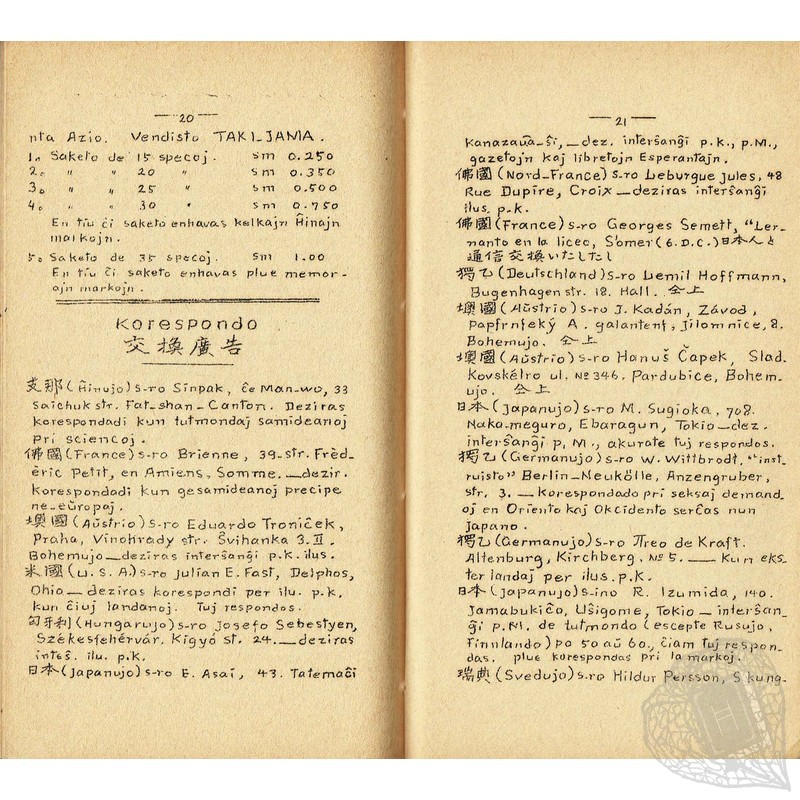 — 20 —
nta Azio. Vendisto TAKI-JAMA.
1. Saketo de 15 specoj. sm 0.250
2. 〃 〃 20 〃 sm 0.350
3. 〃 〃 25 〃 sm 0.500
4. 〃 〃 30 〃 sm 0.750
En tiu ĉi saketo enhavas kelkajn Ĥinajn
malkojn.
5. Saketo de 35 specoj. sm 1.00
En tiu ĉi saketo enhavas plue memor-
ajn markojn.
Korespondo
交換廣告
支那(Ĥinujo) s-ro Sinpak, ĉe Man-wo, 33
Saichuk str. Fat-shan-Canton. Deziras
korespondadi kun tutmondaj samideanoj
pri sciencoj.
佛國(France) s-ro Brienne, 39-str. Frèd-
èric Petit, en Amiens, Somme. — dezir.
korespondadi kun gesamideanoj precipe
ne-eŭropaj.
墺國(Aŭstrio) s-ro Eduardo Troniĉek,
Praha, Vinohrady str. Švihanka 3.II.
Bohemujo — deziras interŝanĝi p.k. ilus.
米國(U.S.A.) s-ro Julian E. Fast, Delphos,
Ohio — deziras korespondi per ilu. p.k.
kun ĉiuj landanoj. Tuj respondos.
匈牙利(Hungarujo) s-ro Josefo Sebestyen,
Székesfehérvár. Kigyó st. 24. — deziras
inteŝ. ilu. p.k.
日本(Japanujo) s-ro E. Asai, 43. Tatemaĉi
— 21 —
Kanazaŭa-ŝi, — dez. interŝanĝi p.k., p.M.,
gazetojn kaj libretojn Esperantajn.
佛國(Nord-France) s-ro Leburgue Jules, 48
Rue Dupire, Croix — deziras interŝanĝi
ilus. p.k.
佛國(France) s-ro Georges Semett, "Ler-
nanto en la liceo, S'omer (6.D.C.) 日本人と
通信交換いたしたし
獨乙(Deutschland) s-ro Lemil Hoffmann,
Bugenhagen str. 18. Hall. 仝上
墺國(Aŭstrio) s-ro J. Kadán, Závod,
Papfrnfeký A. galantent, Jilomnice, 8.
Bohemujo. 仝上
墺國(Aŭstrio) s-ro Hanuš Čapek, Slad.
Kovskélro ul. No 346. Pardubice, Bohem-
ujo. 仝上
日本(Japanujo) s-ro M. Sugioka, 708.
Naka-meguro, Ebaragun, Tokio — dez.
interŝanĝi p, M., akurate tuj respondos.
獨乙(Germanujo) s-ro W. Wittbrodt, "inst-
ruisto" Berlin-Neukölle, Anzengruber,
str. 3. — Korespondado pri seksaj demand-
oj en Oriento kaj Okcidento serĉas nun
Japano.
獨乙(Germanujo) s-ro Treo de Kraft.
Altenburg, Kirchberg, No 5. — Kun eks-
terlandaj per ilus. p.k.
日本(Japanujo) s-ino R. Izumida, 140.
Jamabukiĉo, Uŝigome, Tokio — interŝan-
ĝi p.M. de tutmondo (escepte Rusujo,
Finnlando) po 50 aŭ 60., ĉiam tuj respon-
das. plue korespondas pri la markoj.
瑞典(Svedujo) s-ro Hildur Persson, Skung-